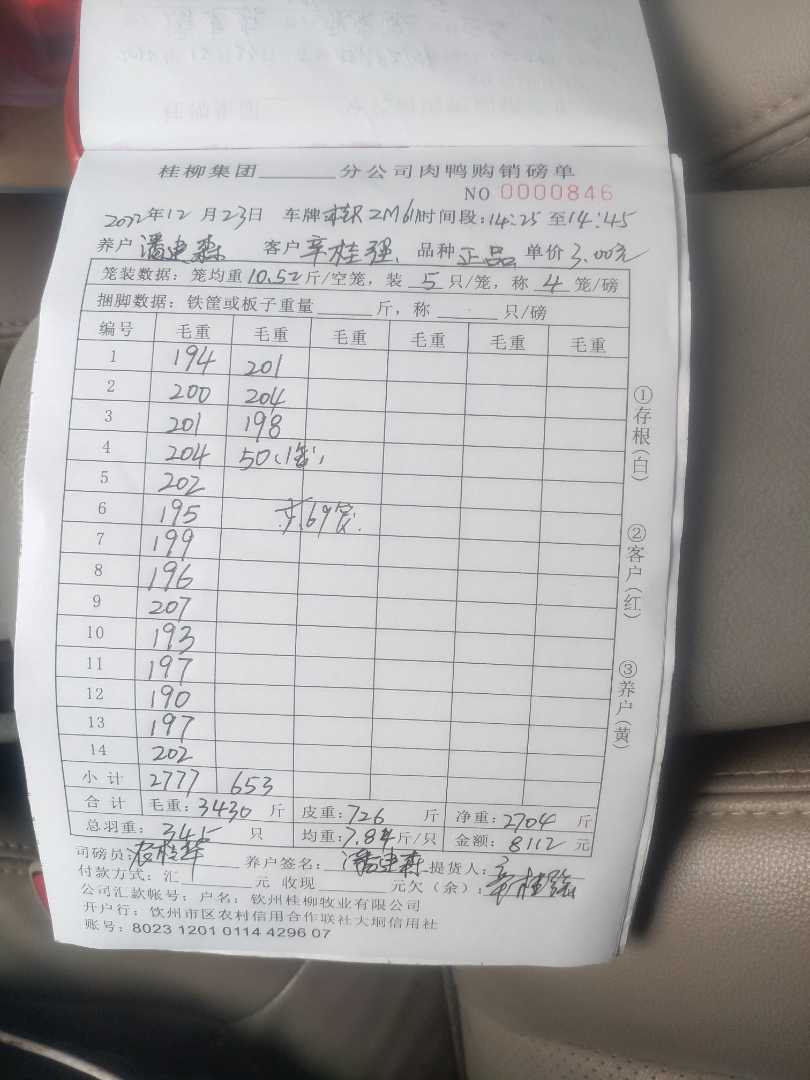 桂柳集团______分公司肉鸭购销磅单
NO 0000846
2022年12月23日 车牌 2M61 时间段:14:25至14:45
养户 客户 辛桂强 品种 正品 单价 3.00元
笼装数据:笼均重 10.52 斤/空笼,装 5 只/笼,称 4 笼/磅
捆脚数据:铁筐或板子重量______斤,称______只/磅
编号 毛重 毛重 毛重 毛重 毛重 毛重
1 194 201
2 200 204
3 201 198
4 204 50(1笼)
5 202
6 195 共69笼
7 199
8 196
9 207
10 193
11 197
12 190
13 197
14 202
小计 2777 653
合计 毛重:3430 斤 皮重:726 斤 净重:2704 斤
总羽重: 345 只 均重:7.84斤/只 金额:8112元
司磅员: 养户签名: 提货人:辛桂强
付款方式:汇______元 收现______元欠(余):
公司汇款帐号:户名:钦州桂柳牧业有限公司
开户行:钦州市区农村信用合作联社大垌信用社
账号:8023 1201 0114 4296 07
①存根(白)
②客户(红)
③养户(黄)